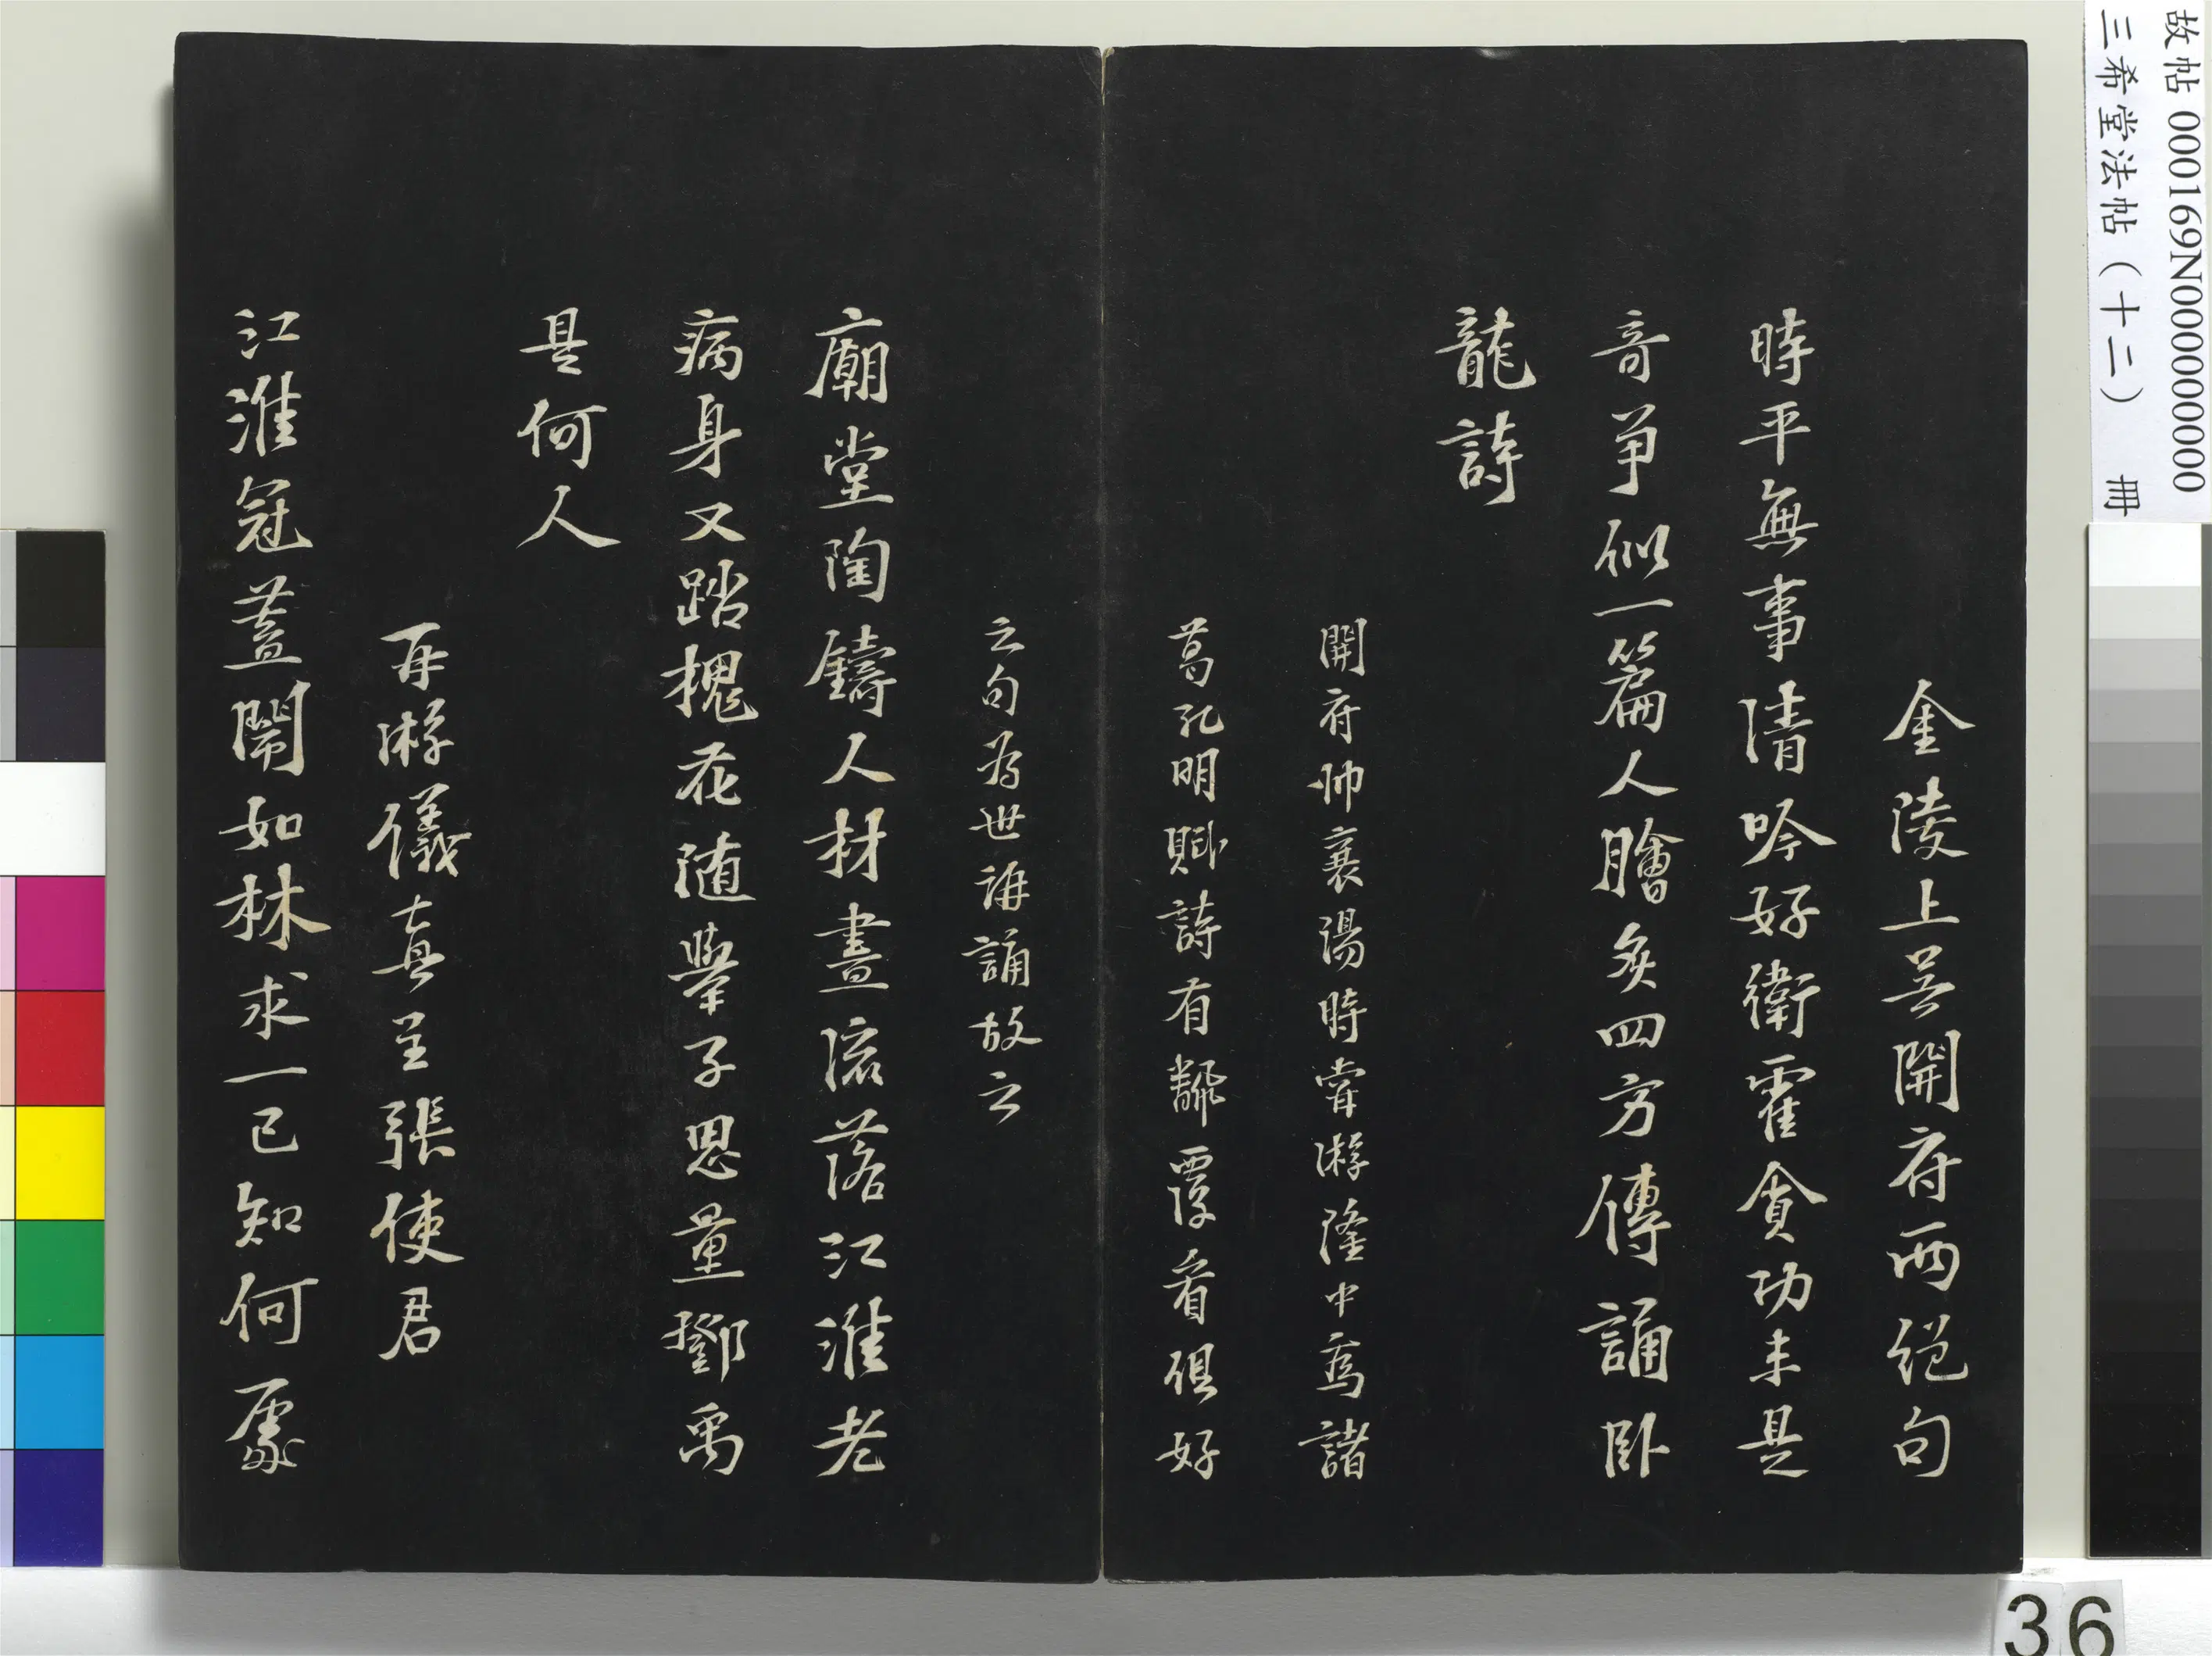 故帖 000169N000000000
三希堂法帖（十二） 冊
金陵上吴開府兩絕句
時平無事清吟好衛霍貪功未是
奇爭似一篇人膾炙四方傳誦臥
龍詩
開府帥襄陽時嘗游隆中爲諸
葛孔明賦詩有翻覆看俱好
之句为世誨誦故云
廟堂陶鑄人材盡流落江淮老
病身又踏槐花随舉子思量鄧禹
是何人
再游儀真呈張使君
江淮冠蓋鬧如林求一已知何處
36